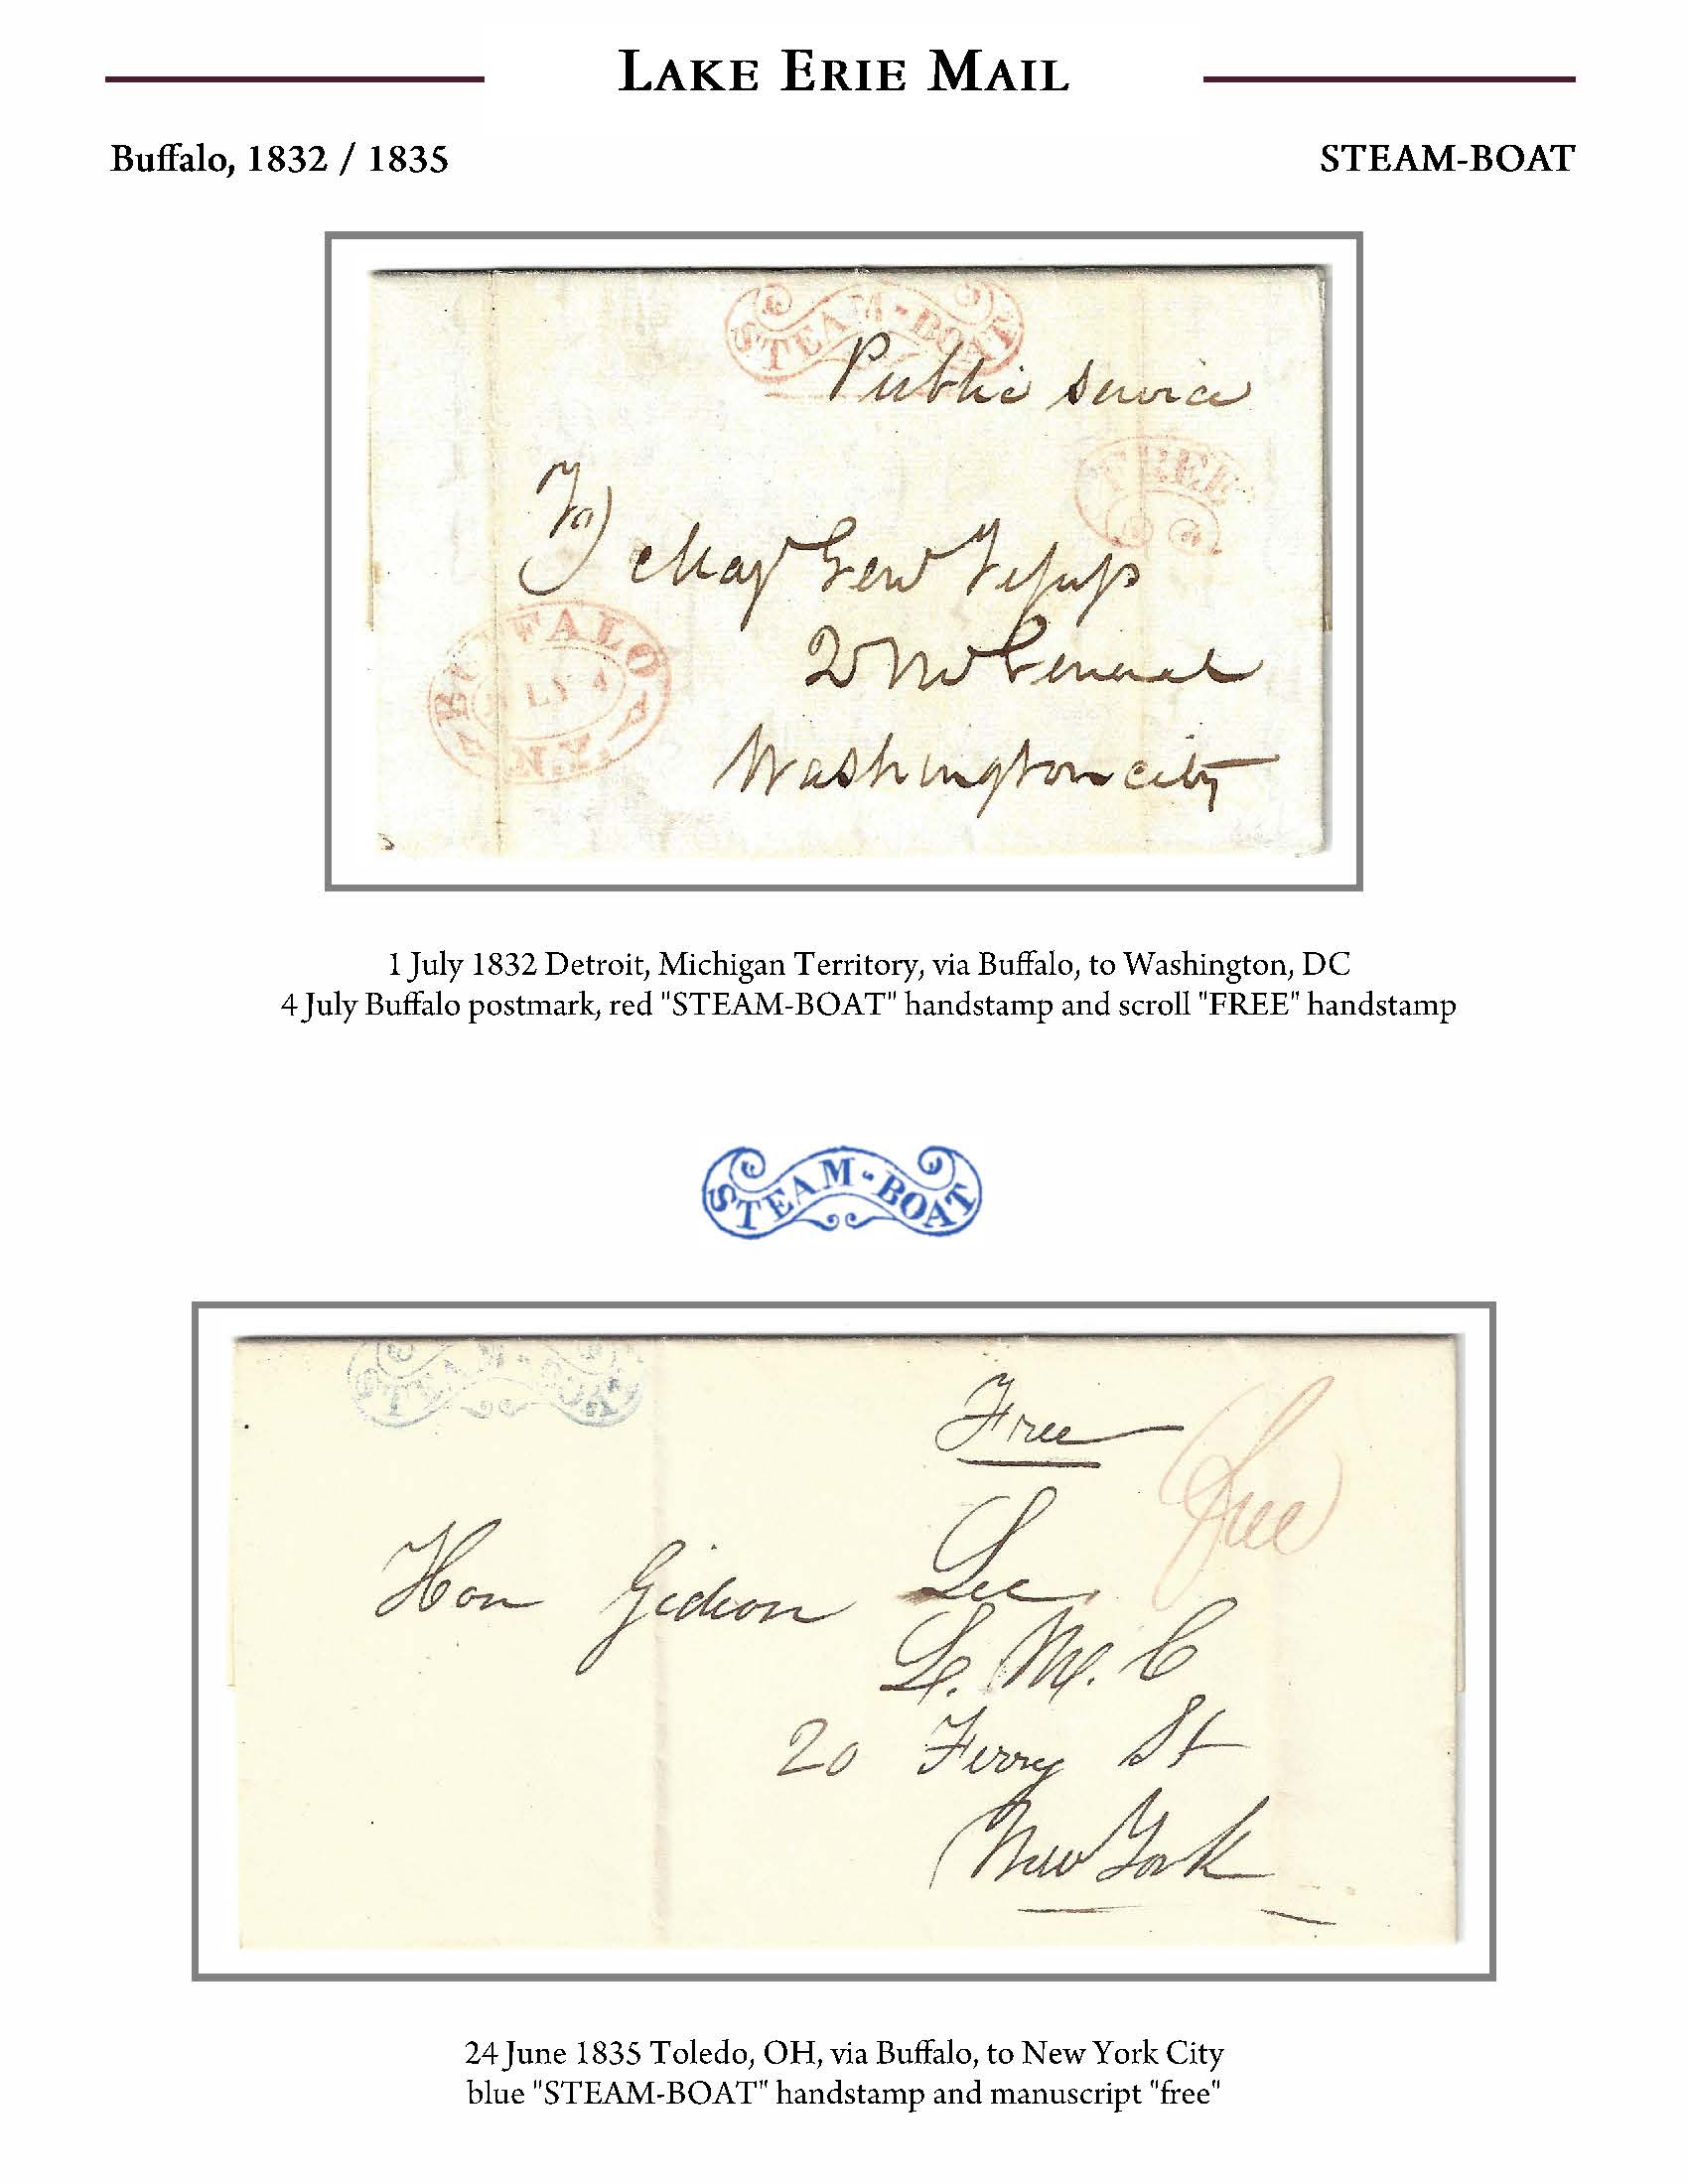 LAKE ERIE MAIL
Buffalo, 1832 / 1835
STEAM-BOAT
STEAM-BOAT
Public service
FREE
To
Maj Gen Jesup
BUFFALO
LY 4
N.Y.
2 M General
Washington city
1 July 1832 Detroit, Michigan Territory, via Buffalo, to Washington, DC
4 July Buffalo postmark, red "STEAM-BOAT" handstamp and scroll "FREE" handstamp
STEAM-BOAT
STEAM-BOAT
Free
free
Hon Gideon Lee
M. C
20 Ferry St
New York
24 June 1835 Toledo, OH, via Buffalo, to New York City
blue "STEAM-BOAT" handstamp and manuscript "free"